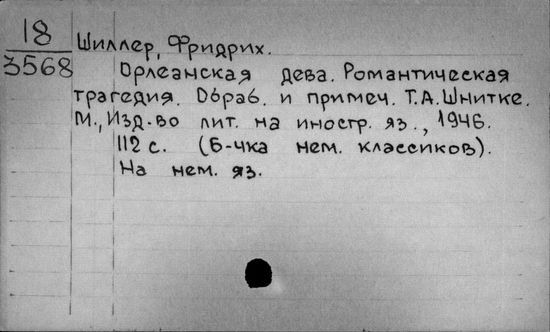 18
3568
Шиллер, Фридрих.
Орлеанская дева. Романтическая
трагедия. Обраб. и примеч. Т.А. Шнитке.
М., Изд-во лит. на иностр. яз., 1946.
112 с. (Б-чка нем. классиков).
На нем. яз.